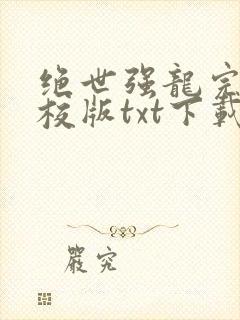 绝世强龍完
校版txt下載
嚴究